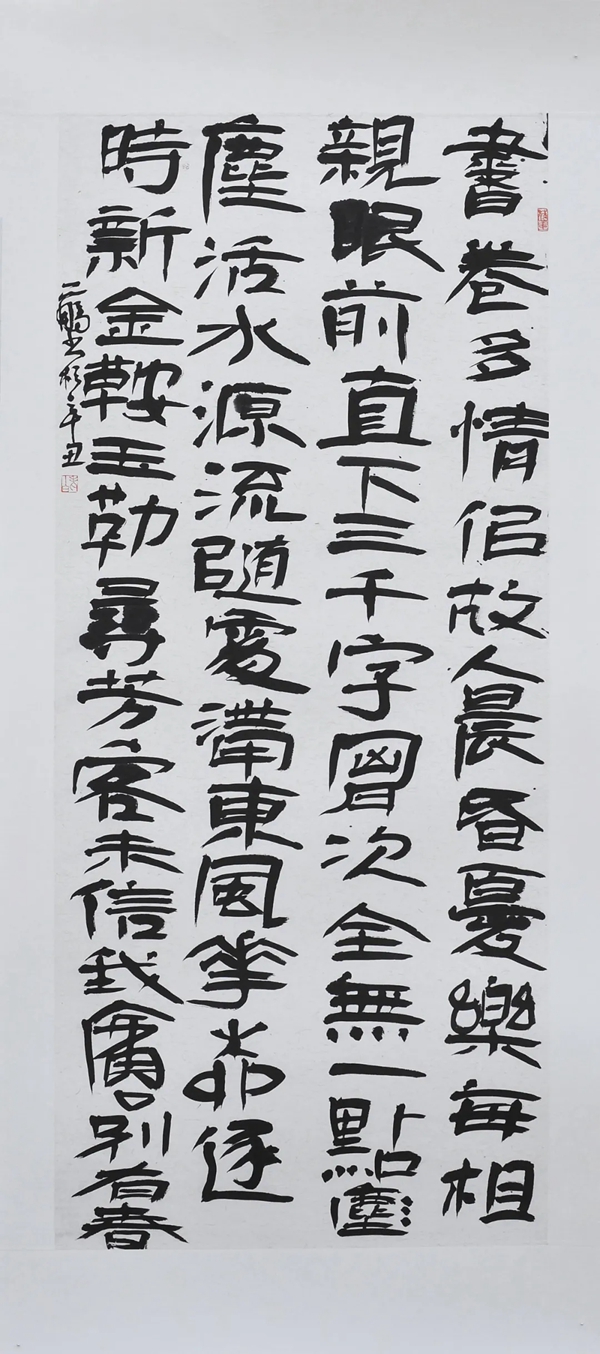 書卷多情佀故人晨昏憂樂每相
親眼前直下三千字胷次全無一點塵
塵活水源流隨處滿東風華桺逐
時新金鞍玉勒尋芳客未信我廬別有春
書於辛丑